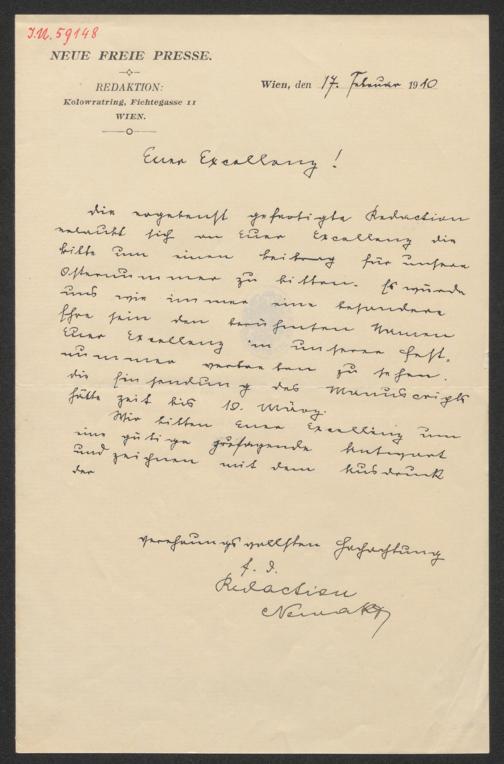 J.N. 59148
NEUE FREIE PRESSE.
REDAKTION:
Kolowratring, Fichtegasse 11
WIEN.
Wien, den 17. Februar 1910
Euer Excellenz!
die ergebenst gefertigte Redaction
erlaubt sich an Euer Excellenz die
bitte um einen beitrag für unsere
Osternummer zu bitten. Es würde
uns wie immer eine besondere
Ehre sein den berühmten Namen
Euer Excellenz in unserer Fest-
nummer vertreten zu sehen.
die Einsendung des Manuscripts
hätte zeit bis 10. März.
Wir bitten Euer Excellenz um
eine gütige zusagende Antwort
und zeichnen mit dem Ausdruck
der
verehrungsvollsten Hochachtung
f. d.
Redaction